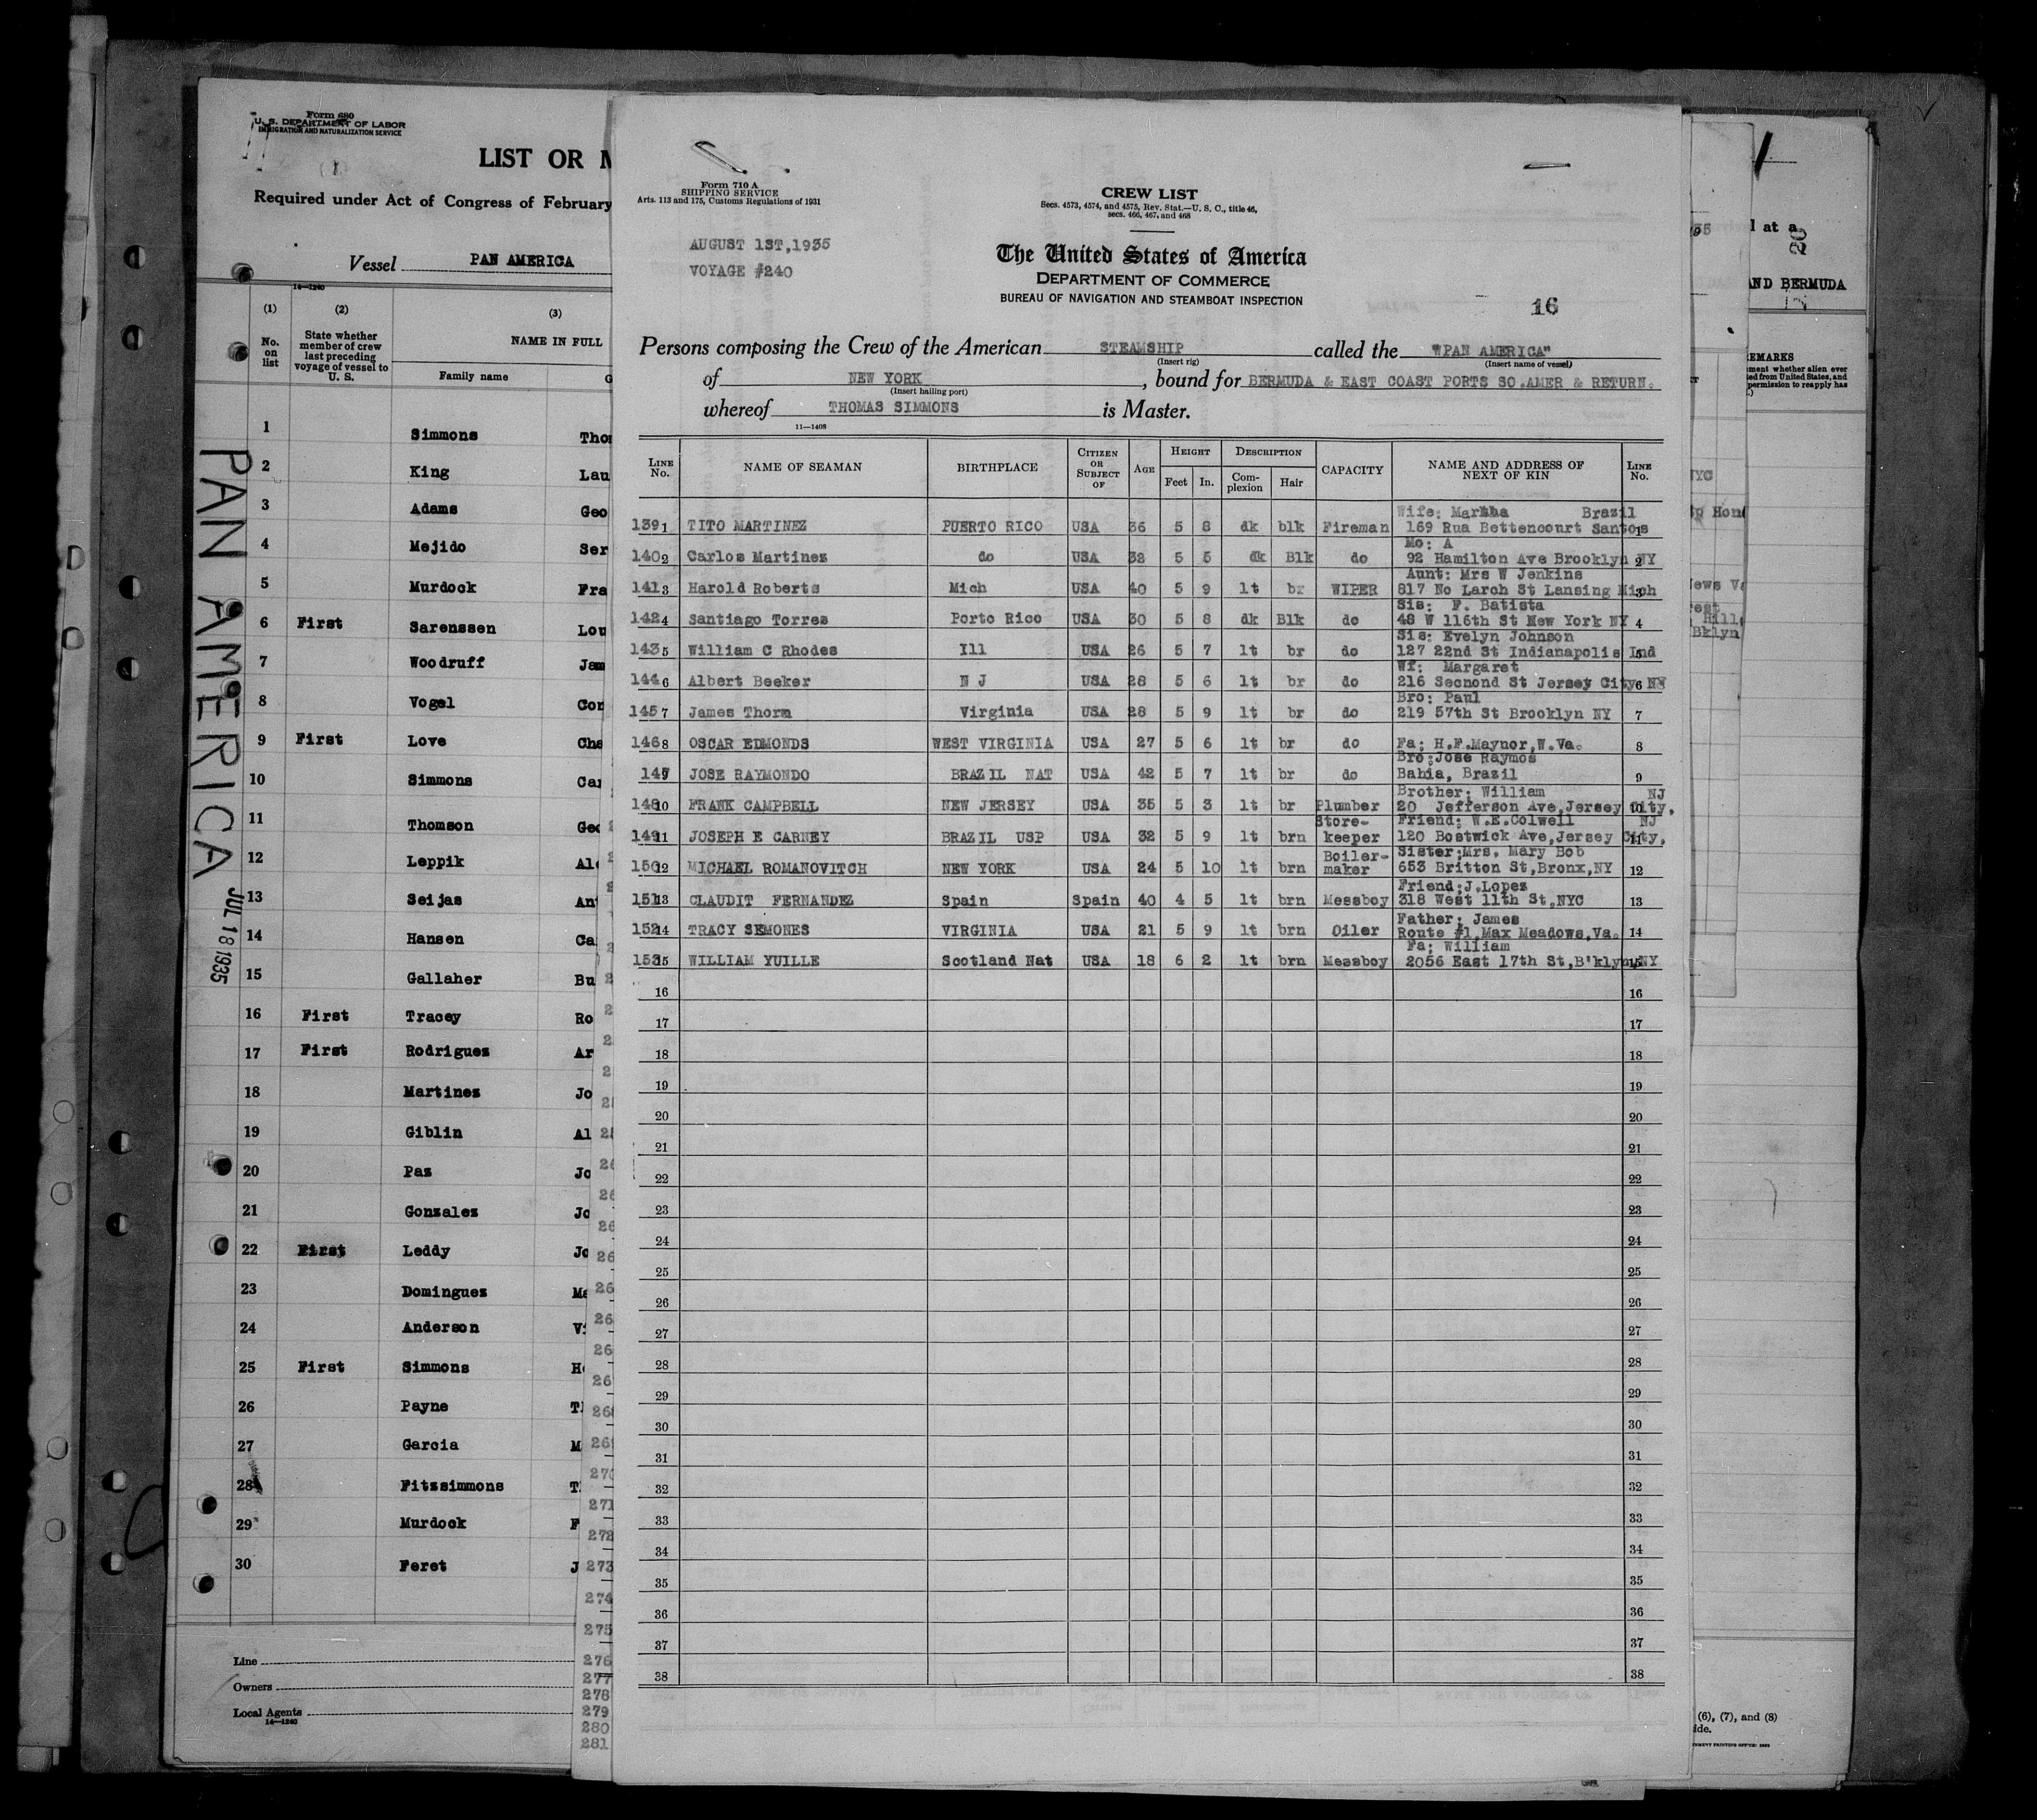 Form 680
U. S. DEPARTMENT OF LABOR
IMMIGRATION AND NATURALIZATION SERVICE
LIST OR
Required under Act of Congress of February
Vessel PAN AMERICA
14—1240
(1) (2) (3)
No. on list State whether member of crew last preceding voyage of vessel to U. S. NAME IN FULL
Family name
1 Simmons Tho
2 King Lau
3 Adams Geo
4 Mejido Ser
5 Murdock Fra
6 First Sarenssen Lou
7 Woodruff Jam
8 Vogel Cor
9 First Love Cha
10 Simmons Car
11 Thomson Geo
12 Leppik Al
13 Seijas An
14 Hansen Ca
15 Gallaher Bu
16 First Tracey Ro
17 First Rodrigues Ar
18 Martinez Jo
19 Giblin Al
20 Paz Jo
21 Gonzales Jo
22 First Leddy Jo
23 Domingues Ma
24 Anderson Vi
25 First Simmons H
26 Payne T
27 Garcia M
28 Fitzsimmons T
29 Murdock F
30 Feret J
Line
Owners
Local Agents
14—1240
PAN AMERICA
JUL 18 1935
270
271
272
273
274
275
276
277
278
279
280
281
Form 710 A
SHIPPING SERVICE
Arts. 113 and 175, Customs Regulations of 1931
CREW LIST
Secs. 4573, 4574, and 4575, Rev. Stat.—U. S. C., title 46,
secs. 466, 467, and 468
AUGUST 1ST,1935
VOYAGE #240
The United States of America
DEPARTMENT OF COMMERCE
BUREAU OF NAVIGATION AND STEAMBOAT INSPECTION
16
Persons composing the Crew of the American STEAMSHIP called the "PAN AMERICA"
(Insert rig) (Insert name of vessel)
of NEW YORK, bound for BERMUDA & EAST COAST PORTS SO.AMER & RETURN.
(Insert hailing port)
whereof THOMAS SIMMONS is Master.
11—1408
LINE No. NAME OF SEAMAN BIRTHPLACE CITIZEN OR SUBJECT OF AGE HEIGHT DESCRIPTION CAPACITY NAME AND ADDRESS OF NEXT OF KIN LINE No.
Feet In. Complexion Hair
Wife: Martha Brazil
139 1 TITO MARTINEZ PUERTO RICO USA 36 5 8 dk blk Fireman 169 Rua Bettencourt Santos 1
Mo: A
140 2 Carlos Martinez do USA 32 5 5 dk Blk do 92 Hamilton Ave Brooklyn NY 2
Aunt: Mrs W Jenkins
141 3 Harold Roberts Mich USA 40 5 9 lt br WIPER 817 No Larch St Lansing Mich 3
Sis: F. Batista
142 4 Santiago Torres Porto Rico USA 30 5 8 dk Blk do 48 W 116th St New York NY 4
Sis: Evelyn Johnson
143 5 William C Rhodes Ill USA 26 5 7 lt br do 127 22nd St Indianapolis Ind 5
Wf: Margaret
144 6 Albert Beeker N J USA 28 5 6 lt br do 216 Secnond St Jersey City NJ 6
Bro: Paul
145 7 James Thorn Virginia USA 28 5 9 lt br do 219 57th St Brooklyn NY 7
146 8 OSCAR EDMONDS WEST VIRGINIA USA 27 5 6 lt br do Fa; H.F.Maynor,W.Va. 8
Bro;Jose Raymos
147 9 JOSE RAYMONDO BRAZIL NAT USA 42 5 7 lt br do Bahia, Brazil 9
Brother: William NJ
148 10 FRANK CAMPBELL NEW JERSEY USA 35 5 3 lt br Plumber 20 Jefferson Ave,Jersey City, 10
Store- Friend; W.E.Colwell NJ
149 11 JOSEPH E CARNEY BRAZIL USP USA 32 5 9 lt brn keeper 120 Bostwick Ave,Jersey City, 11
Boiler- Sister;Mrs. Mary Bob
150 12 MICHAEL ROMANOVITCH NEW YORK USA 24 5 10 lt brn maker 653 Britton St,Bronx,NY 12
Friend;J.Lopez
151 13 CLAUDIT FERNANDEZ Spain Spain 40 4 5 lt brn Messboy 318 West 11th St,NYC 13
Father; James
152 14 TRACY SEMONES VIRGINIA USA 21 5 9 lt brn Oiler Route #1,Max Meadows,Va. 14
Fa; William
153 15 WILLIAM YUILLE Scotland Nat USA 18 6 2 lt brn Messboy 2056 East 17th St,B'klyn,NY 15
16 16
17 17
18 18
19 19
20 20
21 21
22 22
23 23
24 24
25 25
26 26
27 27
28 28
29 29
30 30
31 31
32 32
33 33
34 34
35 35
36 36
37 37
38 38
l at a
20
AND BERMUDA
EMARKS
ment whether alien ever
ed from United States, and
permission to reapply has
NYC
Hon
ews Va
est
Hill,
Bklyn
(6), (7), and (8)
ide.